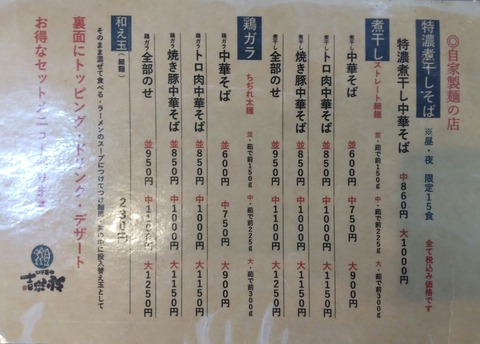 ◎自家製麺の店
特濃煮干しそば ※昼・夜 限定15食 全て税込み価格です
特濃煮干し中華そば 中860円 大1000円
煮干し ストレート細麺 並・茹で前150g 中・茹で前225g 大・茹で前300g
煮干し 中華そば 並600円 中750円 大900円
煮干し トロ肉中華そば 並850円 中1000円 大1150円
煮干し 焼き豚中華そば 並850円 中1000円 大1150円
煮干し 全部のせ 並950円 中1100円 大1250円
鶏ガラ ちぢれ太麺 並・茹で前150g 中・茹で前225g 大・茹で前300g
鶏ガラ 中華そば 並600円 中750円 大900円
鶏ガラ トロ肉中華そば 並850円 中1000円 大1150円
鶏ガラ 焼き豚中華そば 並850円 中1000円 大1150円
鶏ガラ 全部のせ 並950円 中1100円 大1250円
和え玉（細麺） 230円
そのまま混ぜて食べる・ラーメンのスープにつけてつけ麺風・丼の中に投入替え玉として
裏面にトッピング・ドリンク・デザート
お得なセットメニュー